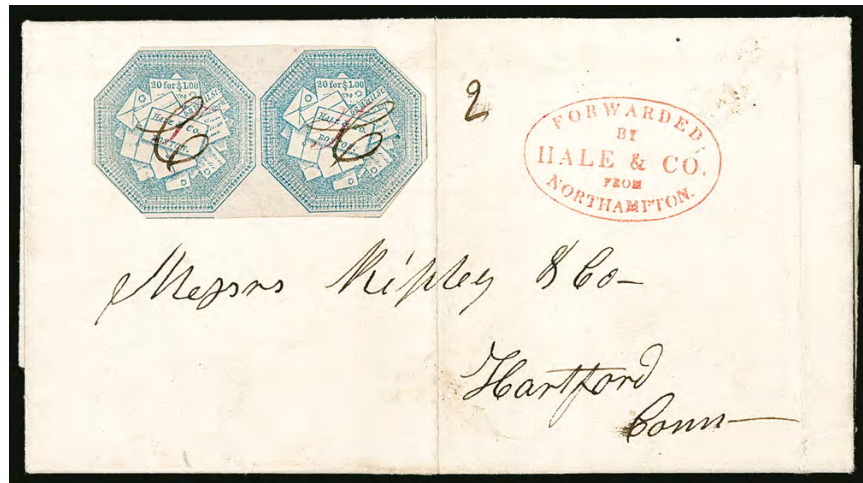 20 for $1.00
HALE & Co.
BOSTON
20 for $1.00
HALE & Co.
BOSTON
2
FORWARDED
BY
HALE & CO.
FROM
NORTHAMPTON.
Messrs Ripley & Co—
Hartford
Conn—